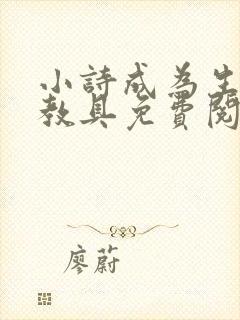 小詩成為生
教具免費閱
廖蔚